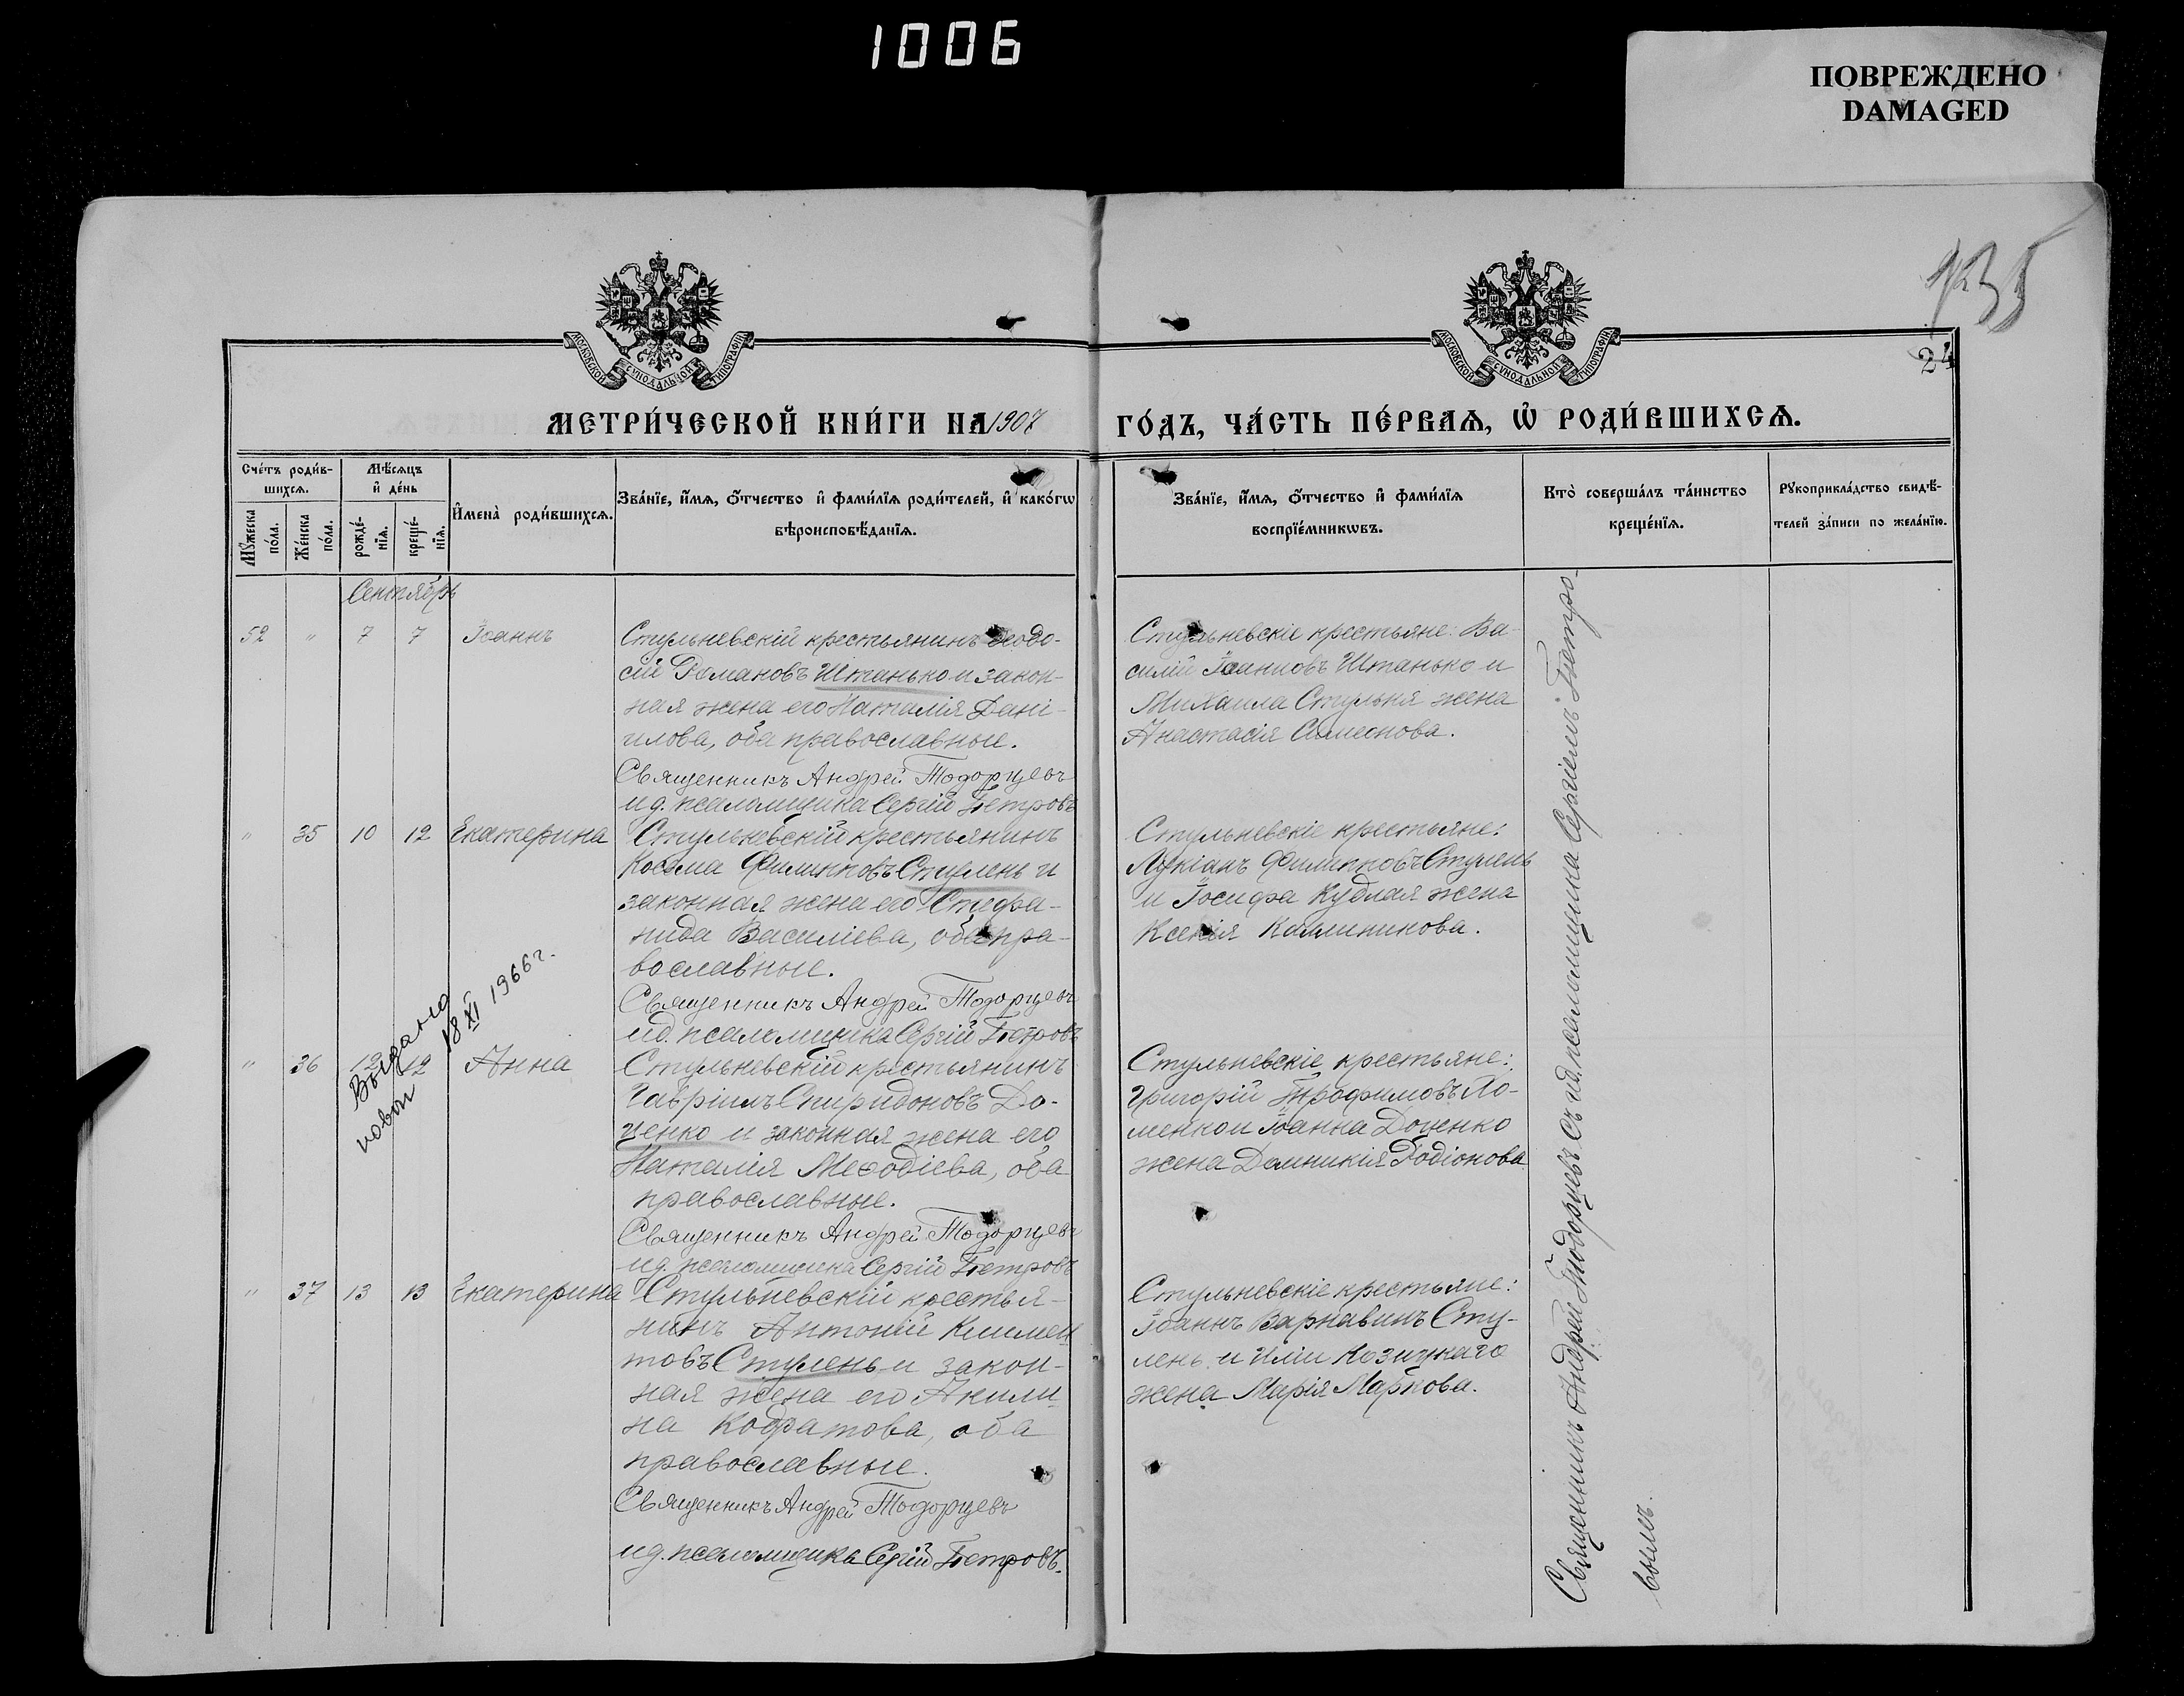 1006
ПОВРЕЖДЕНО
DAMAGED
135
24
МОСКОВСКОЙ СѴНОДАЛЬНОЙ ТИПОГРАФІИ
МОСКОВСКОЙ СѴНОДАЛЬНОЙ ТИПОГРАФІИ
МЕТРИ́ЧЕСКОЙ КНИ́ГИ НА 1907
ГО́ДЪ, ЧА́СТЬ ПЕ́РВАѦ, Ѡ҆ РОДИ́ВШИХСѦ.
Сче́тъ роди́в-
шихсѧ.
Мꙋ́жеска
по́ла.
Же́нска
по́ла.
Мѣ́сѧцъ
и҆ де́нь
рожде́-
нїѧ.
креще́-
нїѧ.
И҆мена̀ роди́вшихсѧ.
Зва́нїе, и҆́мѧ, ѻ҆́тчество и҆ фами́лїѧ роди́телей, и҆ како́гѡ
вѣроисповѣ́данїѧ.
Зва́нїе, и҆́мѧ, ѻ҆́тчество и҆ фами́лїѧ
воспрїе́мникѡвъ.
Кто̀ соверша́лъ та́инство
креще́нїѧ.
Рꙋкоприкла́дство свидѣ́-
телей за́писи по жела́нїю.
Сентябрь
52 " 7 7 Іоаннъ
Стульневскій крестьянинъ Ѳеодо-
сій Романовъ Штанько и закон-
ная жена его Наталія Дані-
илова, оба православные.
Священникъ Андрей Тодорцевъ
и д. псаломщика Сергій Петровъ
Стульневскіе крестьяне: Ва-
силій Іоанновъ Штанько и
Михаила Стульня жена
Анастасія Симеонова.
" 35 10 12 Екатерина
Стульневскій крестьянинъ
Косьма Филипповъ Ступень и
законная жена его Стефа-
нида Василіева, оба пра-
вославные.
Священникъ Андрей Тодорцевъ
и д. псаломщика Сергій Петровъ
Стульневскіе крестьяне:
Лукіанъ Филипповъ Ступень
и Іосифа Кудлая жена
Ксенія Каллиникова.
Выдано
18 XI 1966 г.
" 36 12 12 Анна
Стульневскій крестьянинъ
Гавріилъ Спиридоновъ До-
ценко и законная жена его
Наталія Меѳодіева, оба
православные.
Священникъ Андрей Тодорцевъ
и д. псаломщика Сергій Петровъ
Стульневскіе крестьяне:
Григорій Трофимовъ Ло-
менко и Іоанна Доценко
жена Домникія Родіонова
" 37 13 13 Екатерина
Стульневскій крестья-
нинъ Антоній Климен
товъ Ступень и закон-
ная жена его Акили
на Кодратова, оба
православные.
Священникъ Андрей Тодорцевъ
и д. псаломщика Сергій Петровъ.
Стульневскіе крестьяне:
Іоаннъ Варнавинъ Сту-
пень и Иліи Козицкаго
жена Марія Маркова.
Священникъ Андрей Тодорцевъ съ и д. псаломщика Сергіемъ Петро-
вымъ.